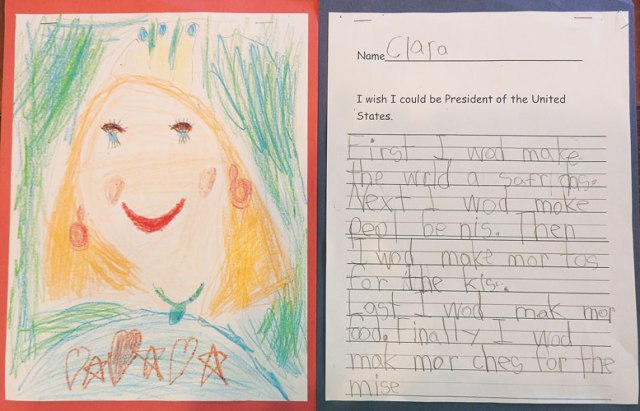 Name Clara
I wish I could be President of the United
States.
First I wod make
the wrld a safr
Next I wod make
peopl be nis. Then
I wod make mor tos
for the kis.
Last I wod mak mor
food. Finally I wod
mak mor ches for the
mise